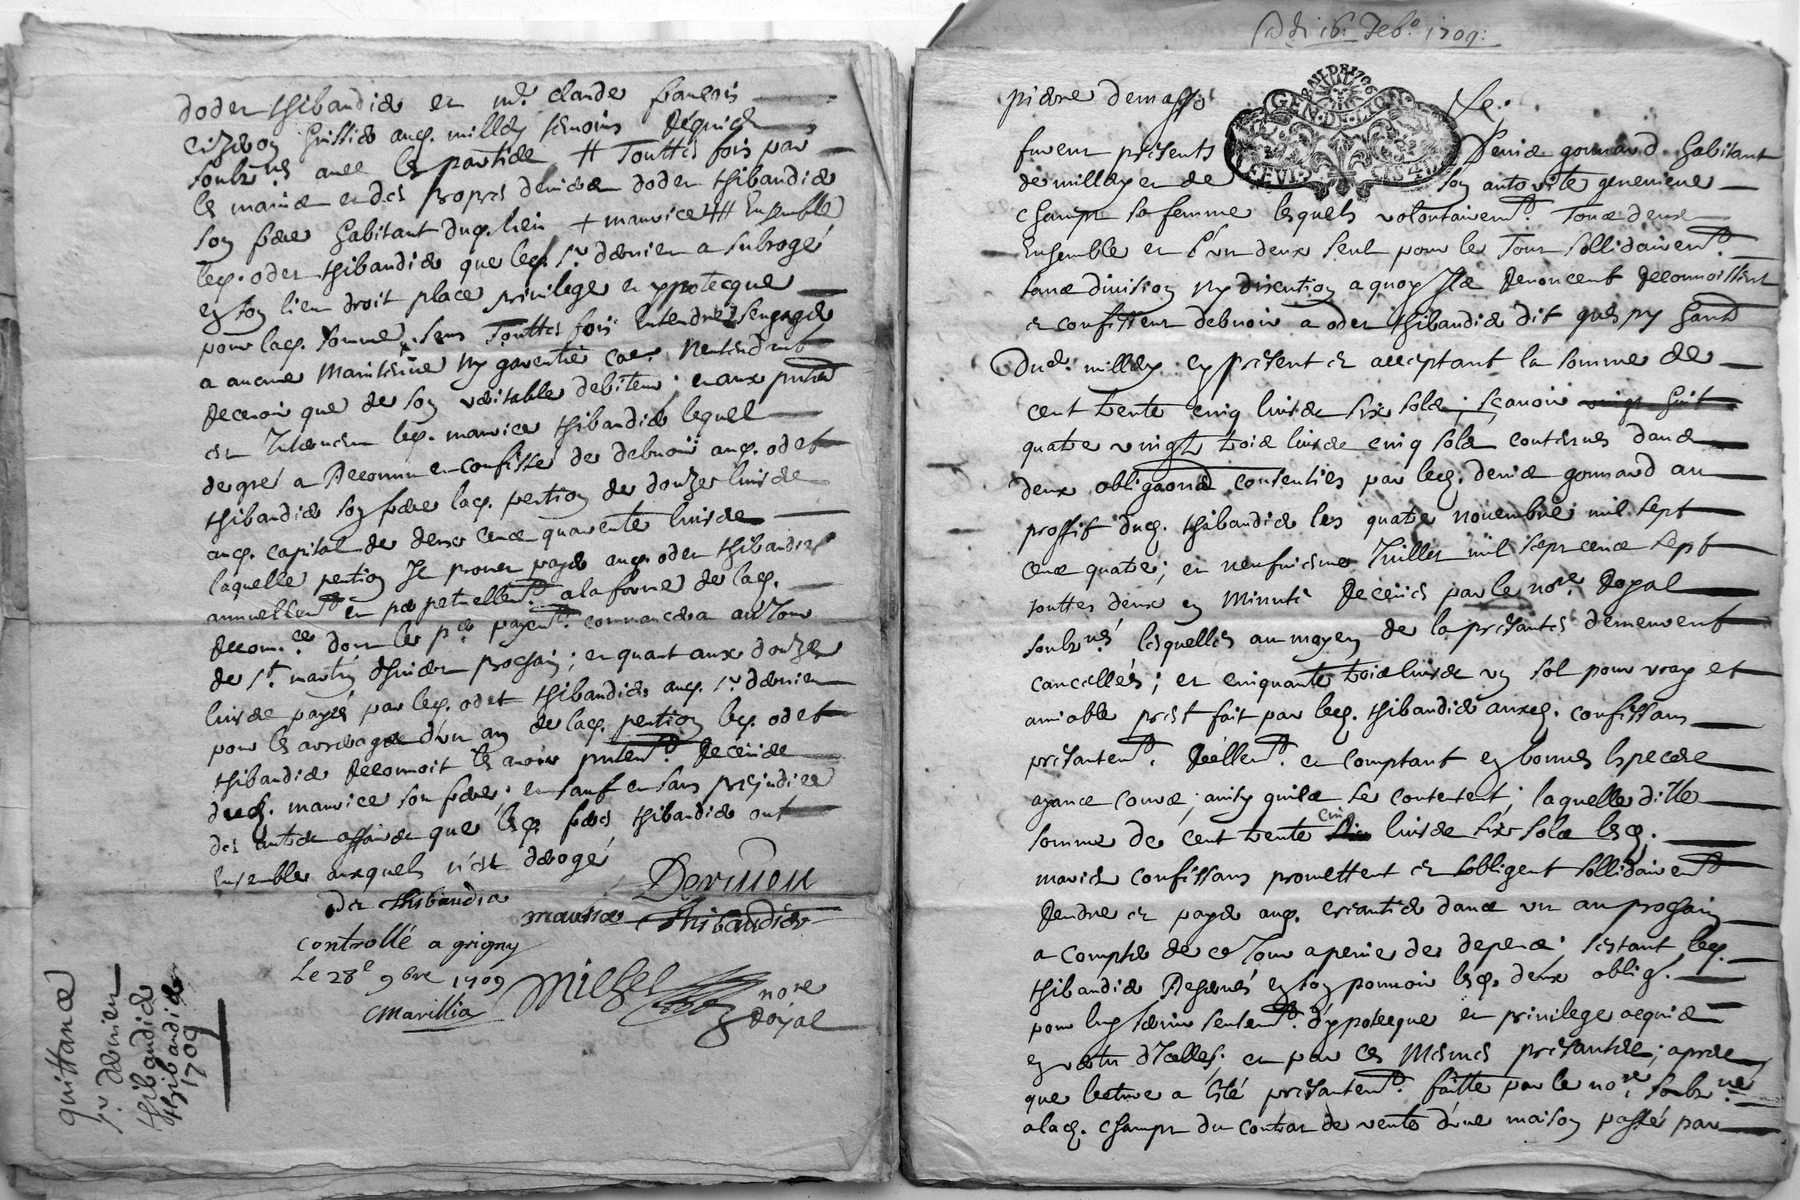 dodet thibaudier et mr. claude françois
huissier aud. millery témoins requis
soubznes avec les parties # Touttes fois par
les mains et des propres deniers dodet thibaudier
son frere habitant dud. lieu + maurice ## Ensemble
led. odet thibaudier que led. sr. dervieu a subrogé
en son lieu droit place privilege et ypotecque
pour lad. somme, sans Touttes fois entendre s'engager
a aucune Maintenue ny garentie car. n'entendant
Recevoir que de son veritable debiteur; et aux
est Intervenu led. maurice thibaudier lequel
de gré a Reconnu et confessé de debvoir aud. odet
thibaudier son frere lad. pention de douze livres
aud. capital de deux cens quarente livres
laquelle pention Il promet payer aud. odet thibaudier
annuellemt. et perpetuellemt. a la forme de lad.
Recon.ce dont le pr. payemt. commencera au Jour
de st. martin d'hiver prochain; et quant aux douze
livres payés par led. odet thibaudier aud. sr. dervieu
pour les arrerages d'un an de lad. pention led. odet
thibaudier Reconnoit les avoir Receües
dud. maurice son frere; et sauf et sans préjudice
des autres affaires que lesd. freres thibaudier ont
Ensemble auxquels n'est derogé
Dervieu
odet thibaudier
maurice thibaudier
controllé a grigny
Le 28e 9bre 1709
Marillia
Michel
nore
Royal
quittance
sr. dervieu
thibaudier
thibaudier
1709
16. feb.o 1709:
pierre demasso
GEN. DE LYON
furent présents Denis gonnard habitant
de millery et de son autorité genevieve
Champt sa femme lesquels volontairemt. Tous deux
Ensemble et l'un deux seul pour le Tout sollidairemt.
sans division ny discution a quoy Ils Renoncent Reconnoissent
et confessent debvoir a odet thibaudier dit
Dud. millery cy présent et acceptant la somme de
cent trente cinq livres six sols; sçavoir
quatre vingt trois livres cinq sols contenus dans
deux obligaons consenties par led. denis gonnard au
proffit dud. thibaudier les quatre novembre mil sept
cens quatre; et neufviesme Juillet mil sept cens sept
touttes deux en Minutte Receües par le nore. Royal
soubzné lesquelles au moyen de la présantes demeurent
cancellées; et cinquante trois livres un sol pour vray et
amiable prest fait par led. thibaudier auxd. confessans
présantemt. Réellemt. et comptant en bonnes Especes
ayans cours; ainsy quils se contentent; laquelle ditte
somme de cent trente cinq livres six sols lesd.
mariés confessans promettent et s'obligent sollidairemt.
Rendre et payer aud. creantier dans un an prochain
a compter de ce Jour a peine de depens; s'estant led.
thibaudier Reservés en son pouvoir lesd. deux oblig.
pour luy servir seulemt. d'ypotecque et privilege acquis
en vertu d'Icelles; et par ces Mesmes présantes; apres
que lecture a Esté présantemt. faitte par le nore. soubzné
a lad. Champt du contrat de vente d'une maison passé par